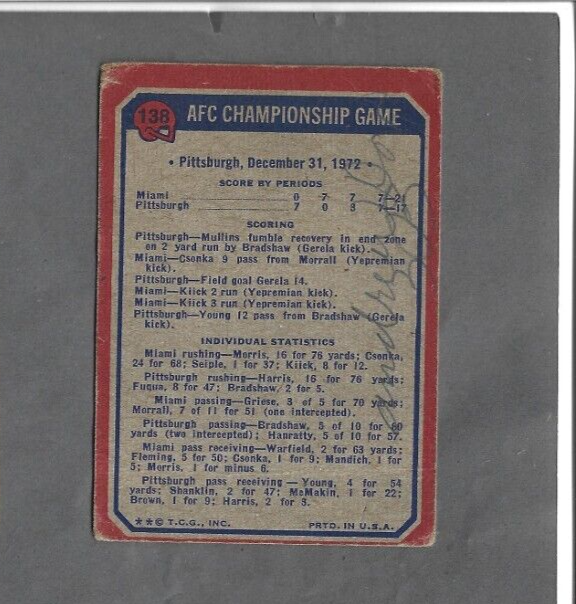 138
AFC CHAMPIONSHIP GAME
• Pittsburgh, December 31, 1972 •
SCORE BY PERIODS
Miami 0 7 7 7—21
Pittsburgh 7 0 3 7—17
SCORING
Pittsburgh—Mullins fumble recovery in end zone
on 2 yard run by Bradshaw (Gerela kick).
Miami—Csonka 9 pass from Morrall (Yepremian
kick).
Pittsburgh—Field goal Gerela 14.
Miami—Kiick 2 run (Yepremian kick).
Miami—Kiick 3 run (Yepremian kick).
Pittsburgh—Young 12 pass from Bradshaw (Gerela
kick).
INDIVIDUAL STATISTICS
Miami rushing—Morris, 16 for 76 yards; Csonka,
24 for 68; Seiple, 1 for 37; Kiick, 8 for 12.
Pittsburgh rushing—Harris, 16 for 76 yards;
Fuqua, 8 for 47; Bradshaw, 2 for 5.
Miami passing—Griese, 3 of 5 for 70 yards;
Morrall, 7 of 11 for 51 (one intercepted).
Pittsburgh passing—Bradshaw, 5 of 10 for 80
yards (two intercepted); Hanratty, 5 of 10 for 57.
Miami pass receiving—Warfield, 2 for 63 yards;
Fleming, 5 for 50; Csonka, 1 for 9; Mandich, 1 for
5; Morris, 1 for minus 6.
Pittsburgh pass receiving—Young, 4 for 54
yards; Shanklin, 2 for 47; McMakin, 1 for 22;
Brown, 1 for 9; Harris, 2 for 3.
★★© T.C.G., INC. PRTD. IN U.S.A.